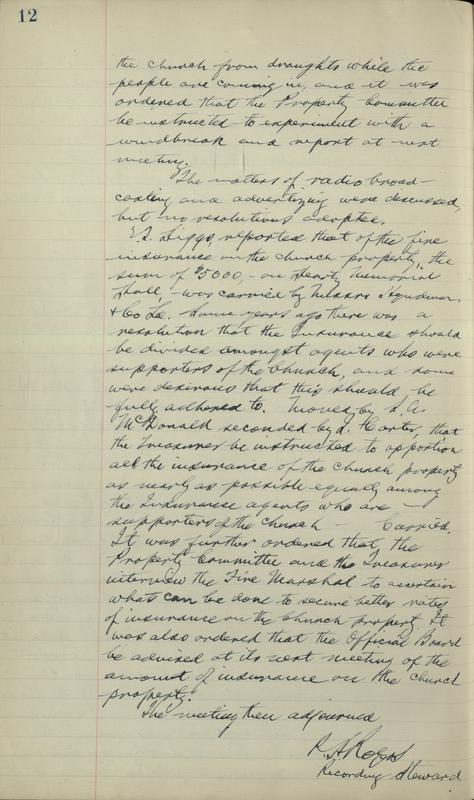 12
the church from draughts while the
people are coming in, and it was
ordered that the Property Committee
be instructed to experiment with a
windbreak and report at next
meeting.
The matters of radio broad-
casting and advertizing were discussed,
but no resolutions adopted.
reported that of the fire
insurance on the church property, the
sum of $5000, - on Memorial
Hall, was carried by Messrs
& Co Ld. Some years ago there was a
resolution that the Insurance should
be divided amongst agents who were
supporters of the Church, and some
were desirous that this should be
fully adhered to. Moved by
McDonald seconded by J. Carter, that
the Treasurer be instructed to apportion
all the insurance of the Church property
as nearly as possible equally among
the Insurance agents who are
supporters of the Church - Carried.
It was further ordered that the
Property Committee and the Treasurer
interview the Fire Marshal to ascertain
what can be done to secure better rates
of insurance on the Church property It
was also ordered that the Official Board
be advised at its next meeting of the
amount of insurance on the Church
property.
The meeting then adjourned
Recording Steward.